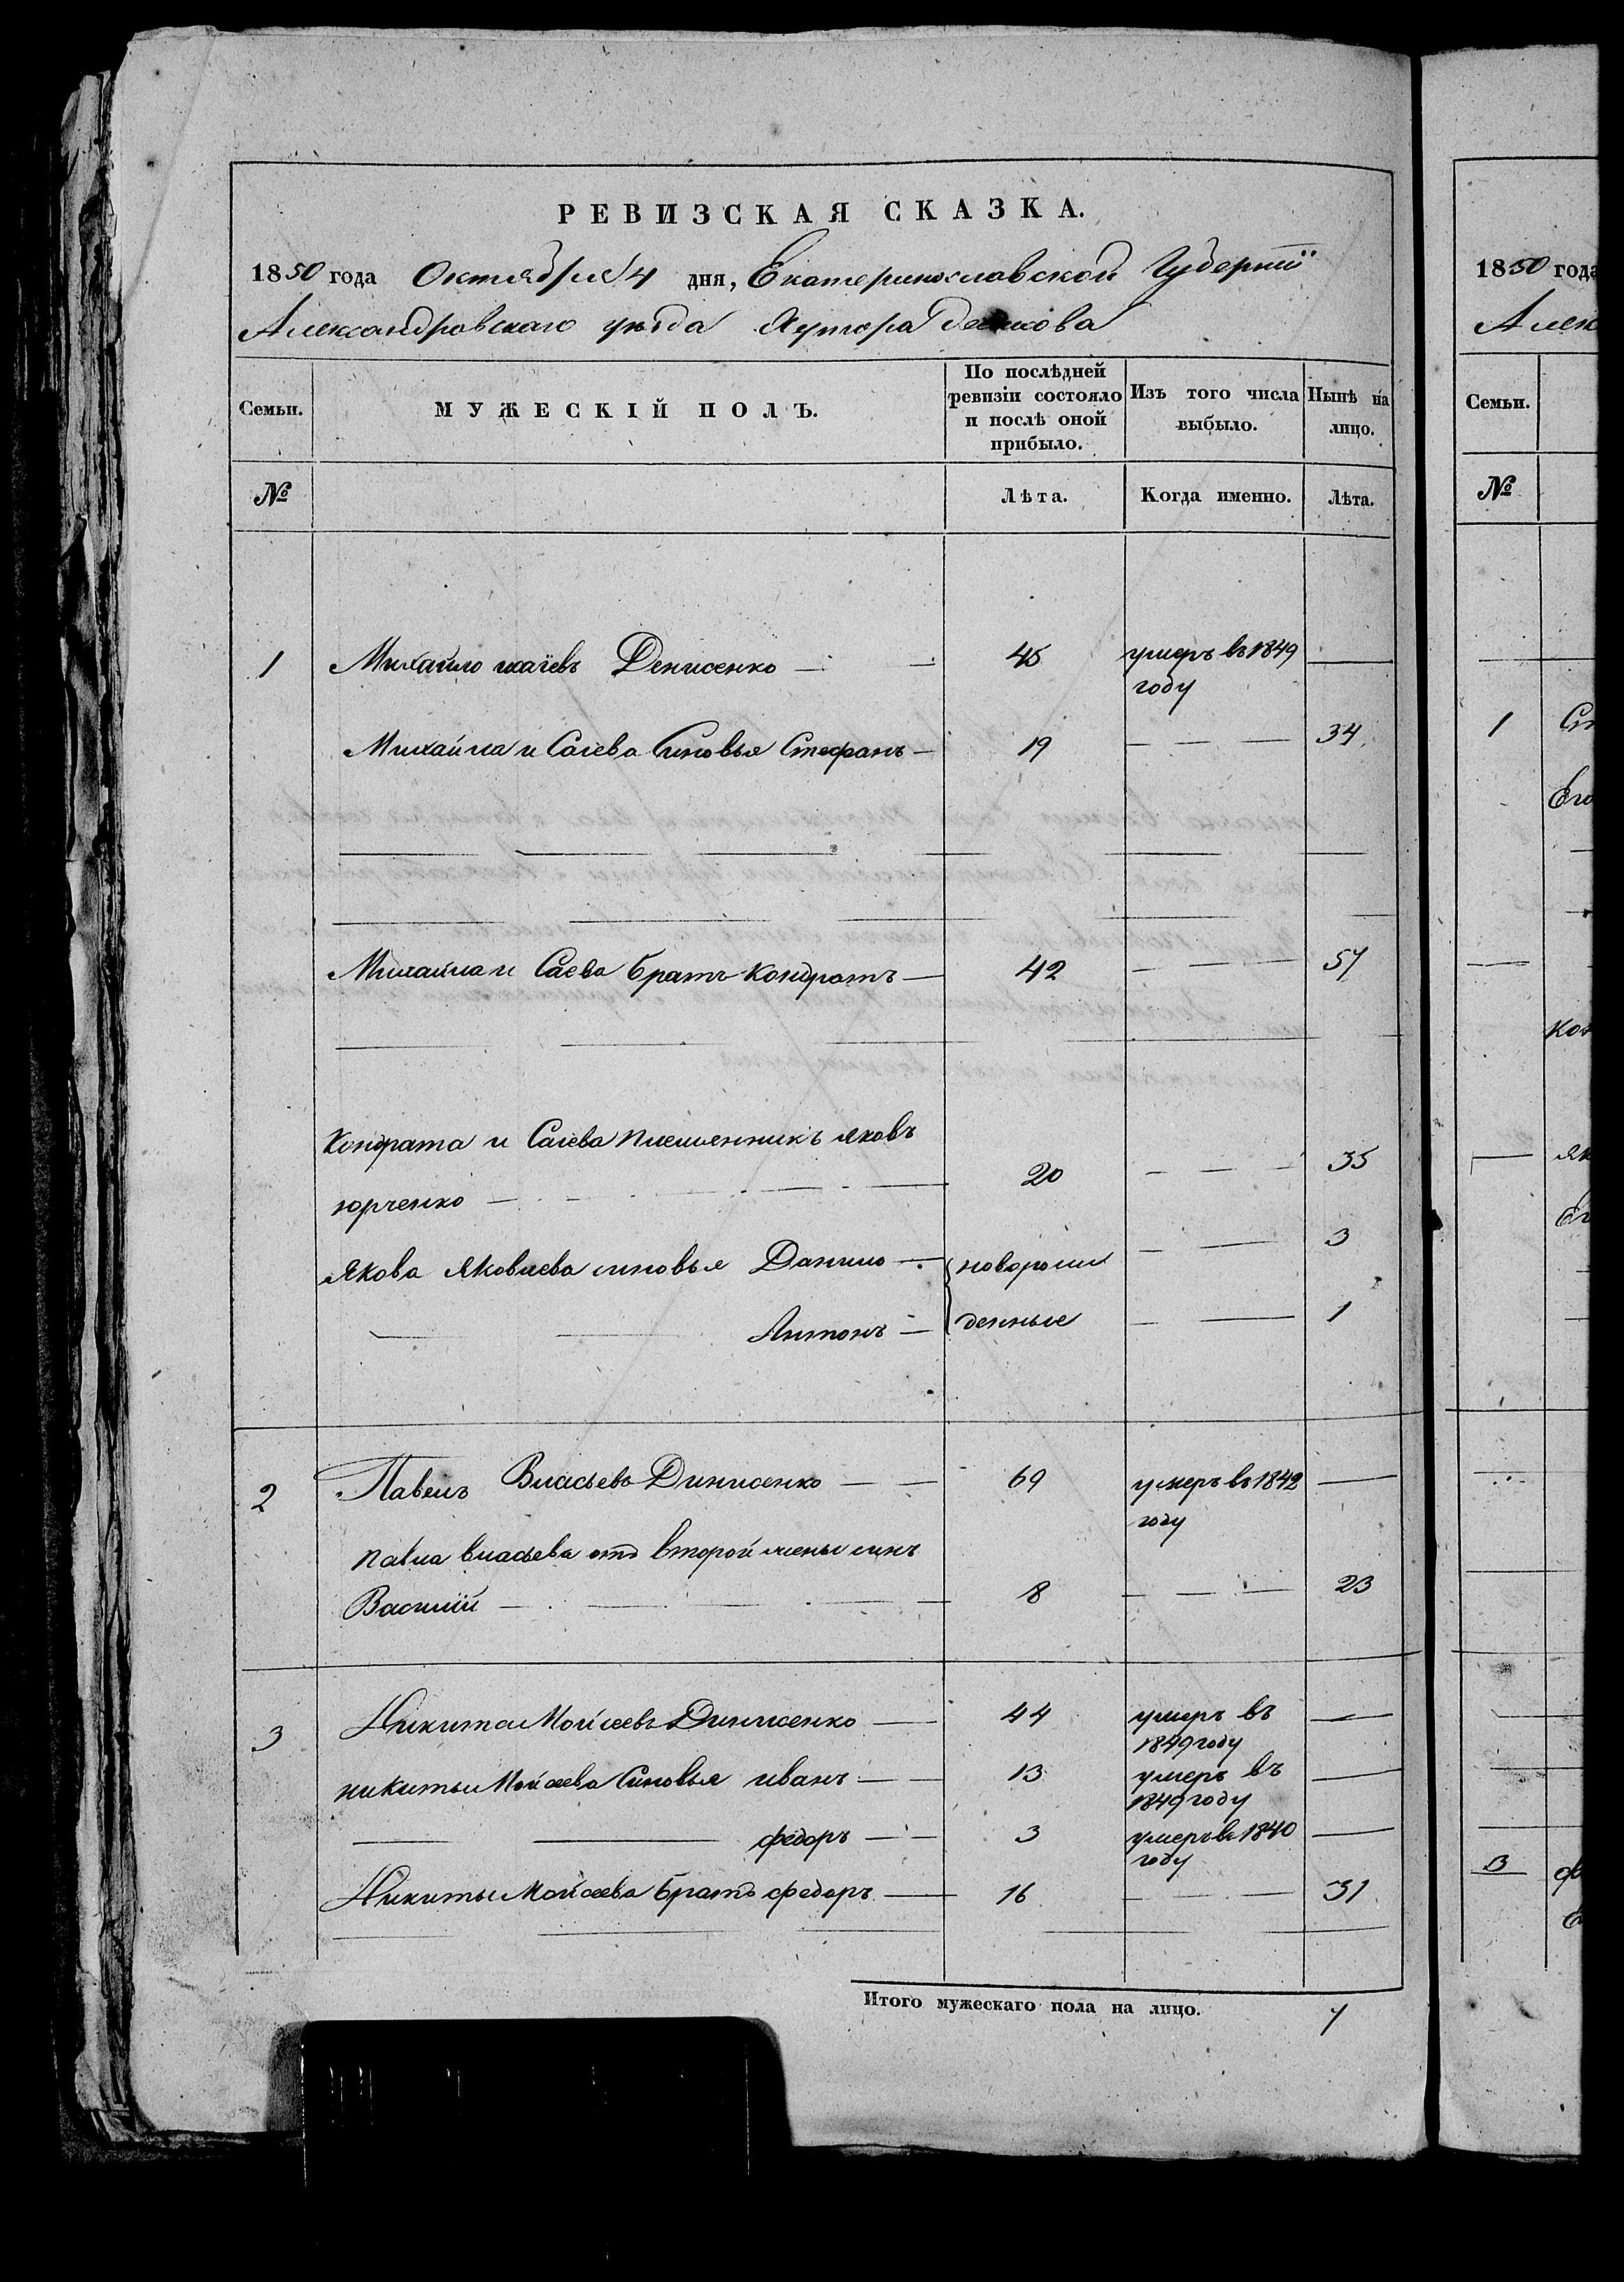 РЕВИЗСКАЯ СКАЗКА.
1850 года Октября 4 дня, Екатеринославской Губернїи
Александровскаго уѣзда Хутора
Семьи. МУЖЕСКІЙ ПОЛЪ. По послѣдней ревизіи состояло и послѣ оной прибыло. Изъ того числа выбыло. Нынѣ на лицо.
№ Лѣта. Когда именно. Лѣта.
1 Михайло исаїевъ Денисенко 45 умеръ въ 1849 году
Михайла и Саіева Синовья Стефанъ 19 34
Михайла и Саева братъ Кондратъ 42 57
Кондрата и Саіева племянникъ яковъ
юрченко 20 35
Якова Яковлева синовья Данило 3
Антонъ новорожденные 1
2 Павелъ Власьевъ Динисенко 69 умеръ въ 1842 году
павла власьева отъ второй жены синъ
Василїй 8 23
3 Никита Мойсеевъ Динисенко 44 умеръ въ 1849 году
никиты Мойсеева Синовья иванъ 13 умеръ въ 1849 году
федоръ 3 умеръ въ 1840 году
Никиты Мойсеева братъ федоръ 16 31
Итого мужескаго пола на лицо. 7
1850 года
Алек
Семьи.
№
1
Его
3